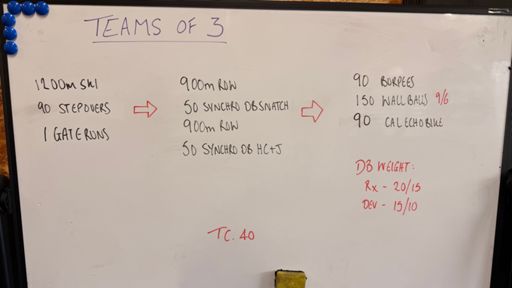 TEAMS OF 3
1200m SKI
90 STEPOVERS
1 GATE RUNS
900m ROW
50 SYNCHRO DB SNATCH
900m ROW
50 SYNCHRO DB HC+J
90 BURPEES
150 WALL BALLS 9/6
90 CAL ECHO BIKE
DB WEIGHT:
Rx - 20/15
DEV - 15/10
TC. 40